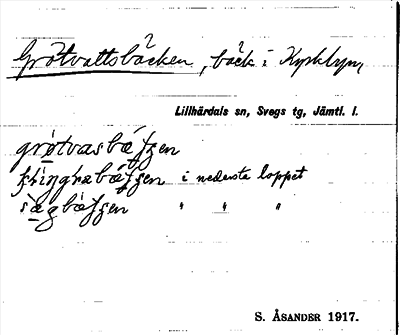 Grötvattsbäcken, bäck i Kyrkbyn,
Lillhärdals sn, Svegs tg, Jämtl. l.
grötvasbäʃʃen
i nedersta loppet
sägbäʃʃen " " "
S. ÅSANDER 1917.